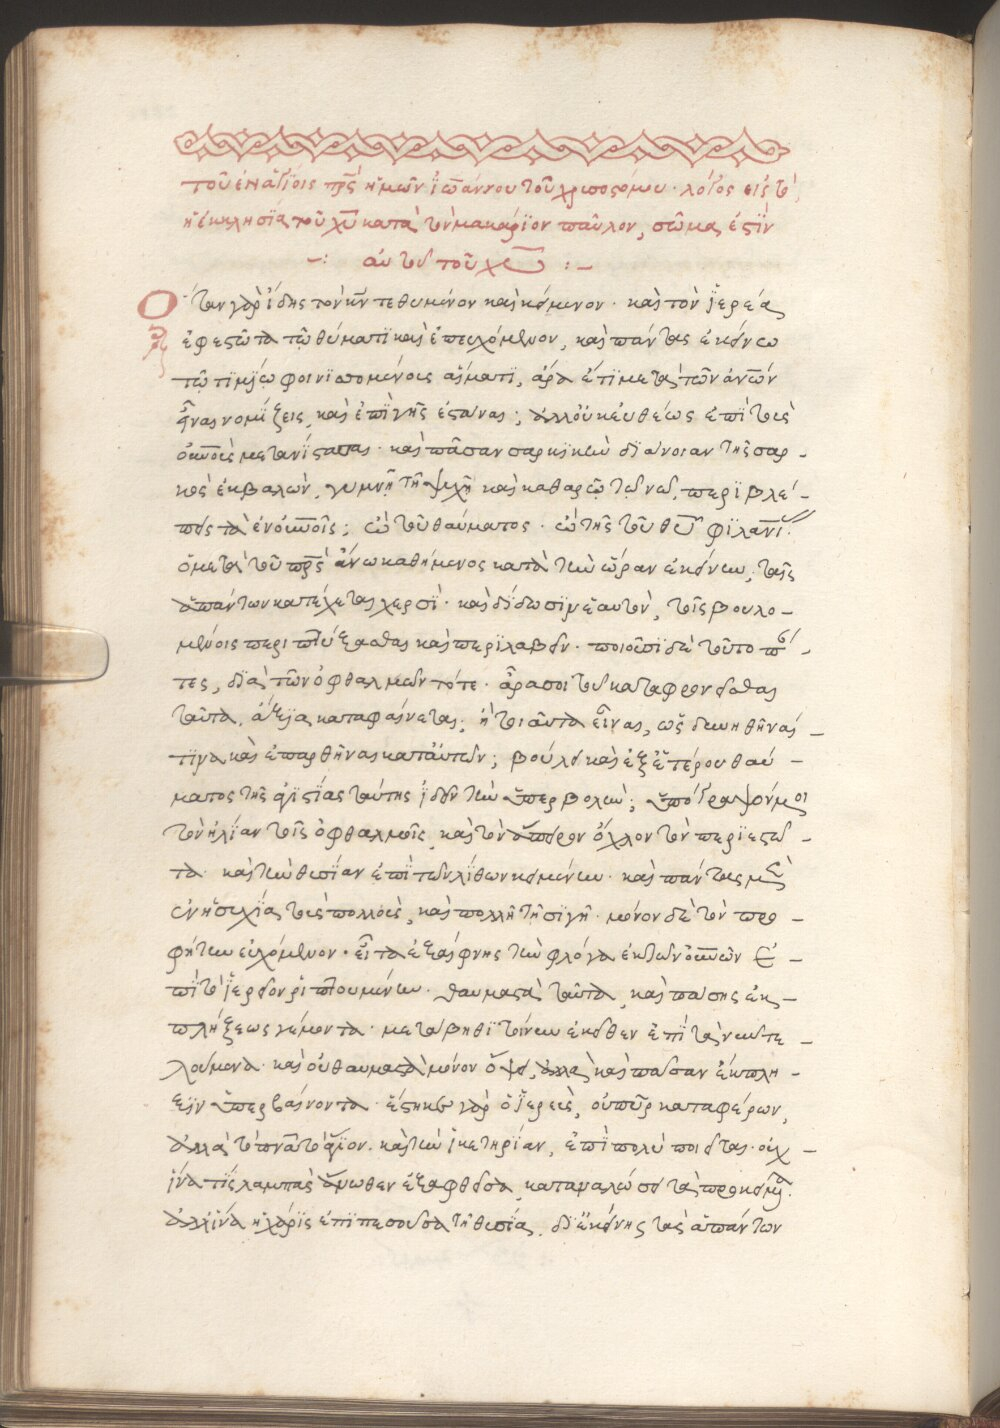 τοῦ ἐν ἁγίοις πρς ἡμῶν ἰωάννου τοῦ χρυσοστόμου· λόγος εἰς τὸ,
ἡ ἐκκλησία τοῦ χυ κατὰ τὸν μακάριον παῦλον, σῶμα ἐστὶν
αὐτοῦ τοῦ χυ :–
Ὅταν γὰρ ἴδης τὸν κν τεθυμένον καὶ κείμενον· καὶ τὸν ἱερέα
ἐφεστῶτα τῶ θύματι καὶ ἐπευχόμενον, καὶ πάντας ἐκείνω
τῶ τιμίω φοινισσομένους αἵματι, ἆρα ἔτι μετὰ τῶν ἀνων
εἶναι νομίζεις, καὶ ἐπὶ γῆς ἑστάναι; ἀλλ' οὐκ εὐθέως ἐπὶ τοὺς
οὐνοὺς μετανίστασαι· καὶ πᾶσαν σαρκικὴν διάνοιαν τῆς σαρ-
κὸς ἐκβαλὼν, γυμνῆ τῆ ψυχῆ καὶ καθαρῶ τῶ νῶ, περιβλέ-
πεις τὰ ἐν οὐνοῖς; ὢ τοῦ θαύματος· ὢ τῆς τοῦ θυ φιλανι·
ὁ μετὰ τοῦ πρς ἄνω καθήμενος κατὰ τὴν ὥραν ἐκείνην, ταῖς
ἁπάντων κατέχεται χερσὶ· καὶ δίδωσιν ἑαυτὸν, τοῖς βουλο-
μένοις περιπτύξασθαι καὶ περιλαβεῖν· ποιοῦσι δὲ τοῦτο πά-
τες, διὰ τῶν ὀφθαλμῶν τότε· ἆρα σοι τοῦ καταφρονεῖσθαι
ταῦτα, ἄξια καταφαίνεται; ἢ τοιαῦτα εἶναι, ὡς δυνηθῆναί-
τινα καὶ ἐπαρθῆναι κατ' αὐτῶν; βούλει καὶ ἐξ ἑτέρου θαύ-
ματος τῆς ἁγιστίας ταύτης ἰδεῖν τὴν ὑπερβολὴν; ὑπόγραψόν μοι
τὸν ἠλίαν τοῖς ὀφθαλμοῖς, καὶ τὸν ἄπειρον ὄχλον τὸν περιεστῶ-
τα· καὶ τὴν θυσίαν ἐπὶ τῶν λίθων κειμένην· καὶ πάντας μὲν
ἐν ἡσυχία τοὺς πολλοὺς, καὶ πολλῆ τῆ σιγῆ· μόνον δὲ τὸν προ-
φήτην εὐχόμενον· εἶτα ἐξαίφνης τὴν φλόγα ἐκ τῶν οὐνῶν ἐ-
πὶ τὸ ἱερεῖον ῥιπτουμένην· θαυμαστὰ ταῦτα, καὶ πάσης ἐκ-
πλήξεως γέμοντα· μετάβηθι τοίνυν ἐκεῖθεν ἐπὶ τὰ νῦν τε-
λούμενα· καὶ οὐ θαυμαστὰ μόνον ὄψει, ἀλλὰ καὶ πᾶσαν ἔκπλη-
ξιν ὑπερβαίνοντα· ἕστηκε γὰρ ὁ ἱερεὺς, οὐ πῦρ καταφέρων,
ἀλλὰ τὸ πνα τὸ ἅγιον· καὶ τὴν ἱκετηρίαν, ἐπὶ πολὺ ποιεῖται· οὐχ-
ἵνα τὶς λαμπὰς ἄνωθεν ἐξαφθεῖσα, καταναλώσει τὰ προκείμενα·
ἀλλ' ἵνα ἡ χάρις ἐπιπεσοῦσα τῆ θυσία, δι' ἐκείνης τὰς ἁπάντων